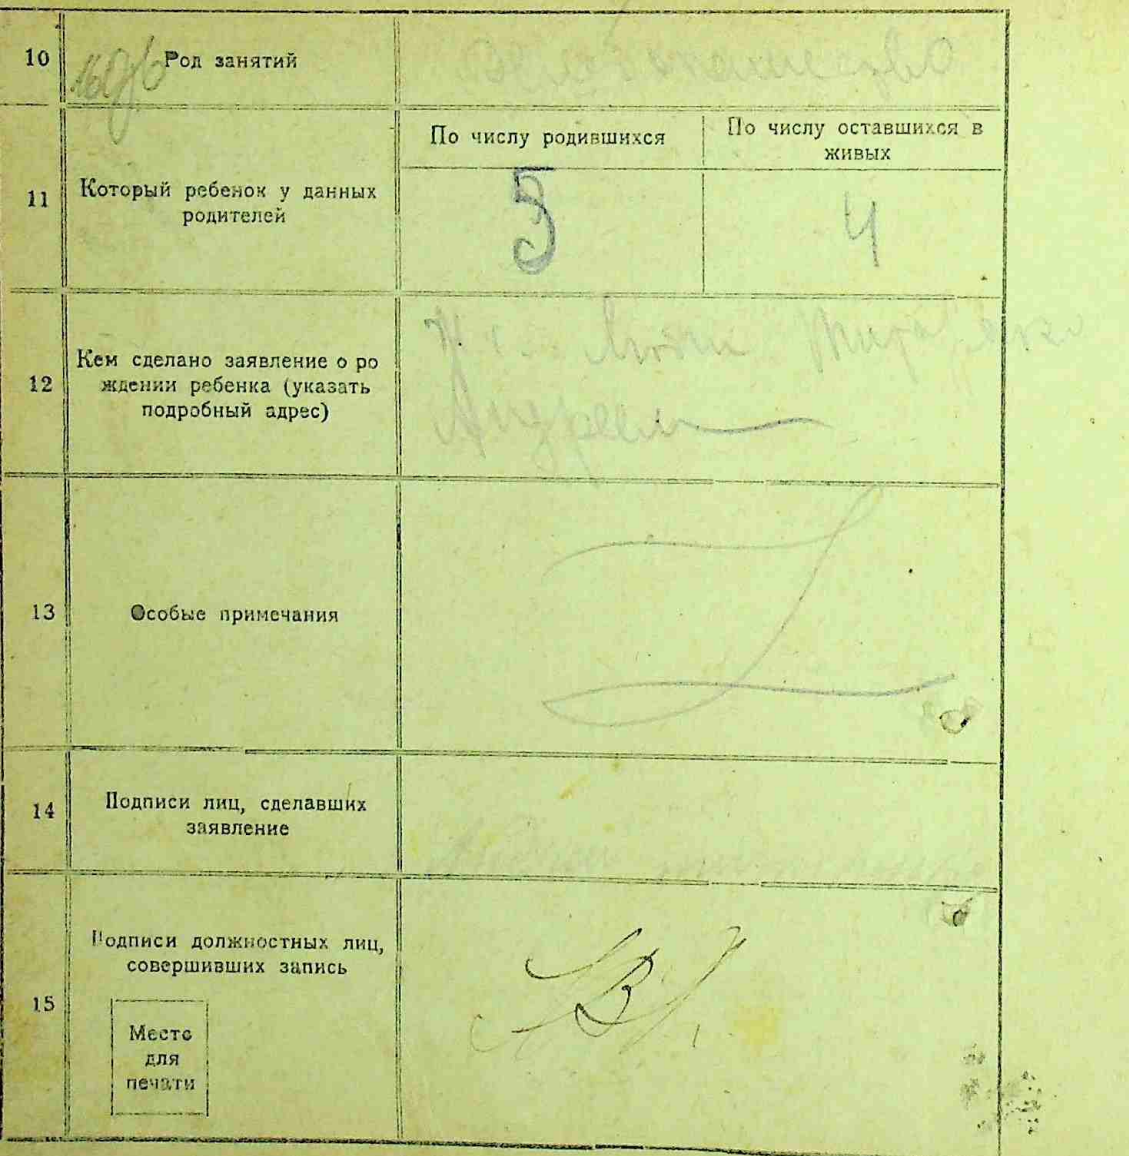 10 Род занятий
11 Который ребенок у данных
родителей
По числу родившихся
По числу оставшихся в
живых
5
4
12 Кем сделано заявление о ро
ждении ребенка (указать
подробный адрес)
Андреем
13 Особые примечания
14 Подписи лиц, сделавших
заявление
15 Подписи должностных лиц,
совершивших запись
Место
для
печати